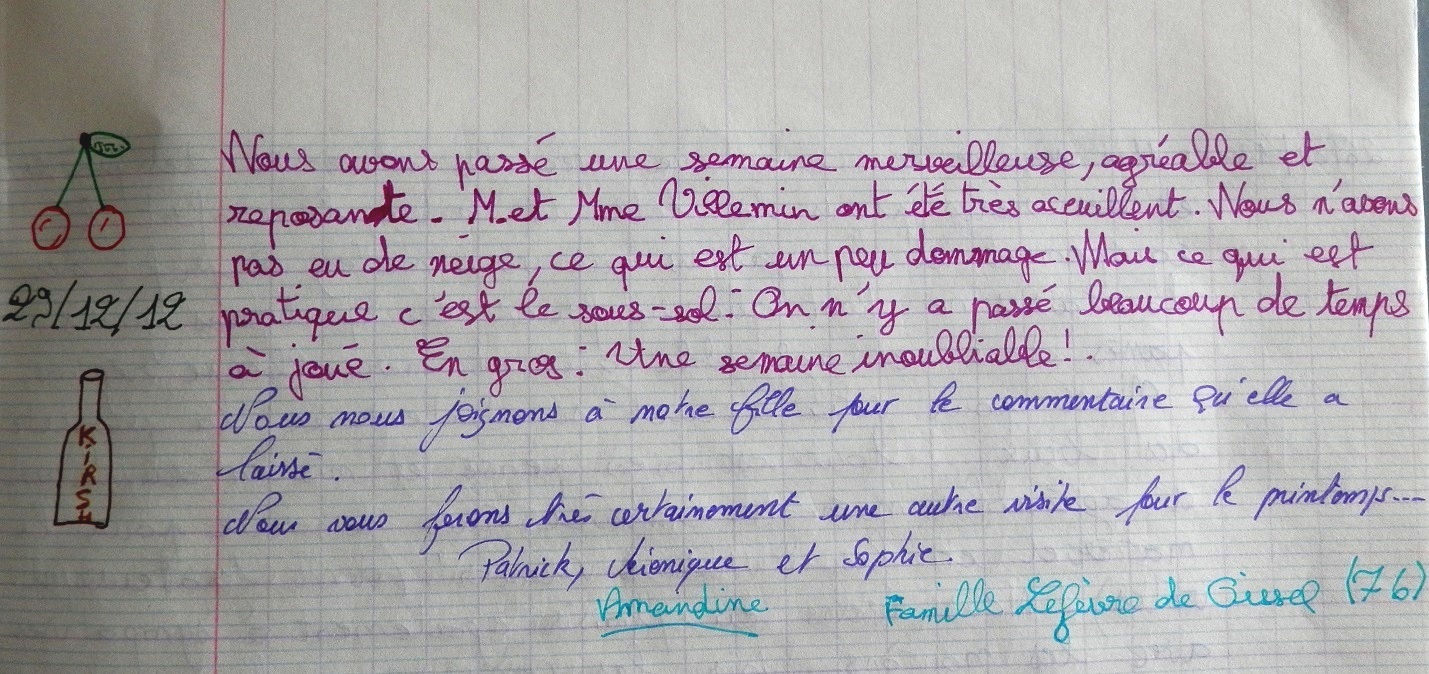 Nous avons passé une semaine merveilleuse, agréable et
reposante. M. et Mme Villemin ont été très aceuillent. Nous n'avons
pas eu de neige, ce qui est un peu dommage. Mais ce qui est
29/12/12
pratique c'est le sous-sol. On n'y a passé beaucoup de temps
à joué. En gros : Une semaine inoubliable !.
KIRSH
Nous nous joignons à notre fille pour le commentaire qu'elle a
laissé.
Nous vous ferons très certainement une autre visite pour le printemps...
Patrick, Véronique et Sophie.
Amandine
Famille Lefèvre de (76)